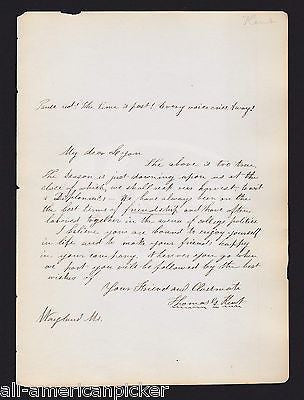 Kent
Pause not! the time is past! Every voice cries Away!
My dear Logan
The above is too true.
The season is just dawning upon us at the
close of which, we shall our harvest, last
Diplomas. We have always been on the
the best terms of friendship and have often
labored together in the arena of college politics
I believe you are bound to enjoy yourself
in life and to make your friends happy
in your company. Wherever you go when
we part you will be followed by the best
wishes of
Your Friend and Classmate
Thomas Kent
Wayland Ms.
all-americanpicker